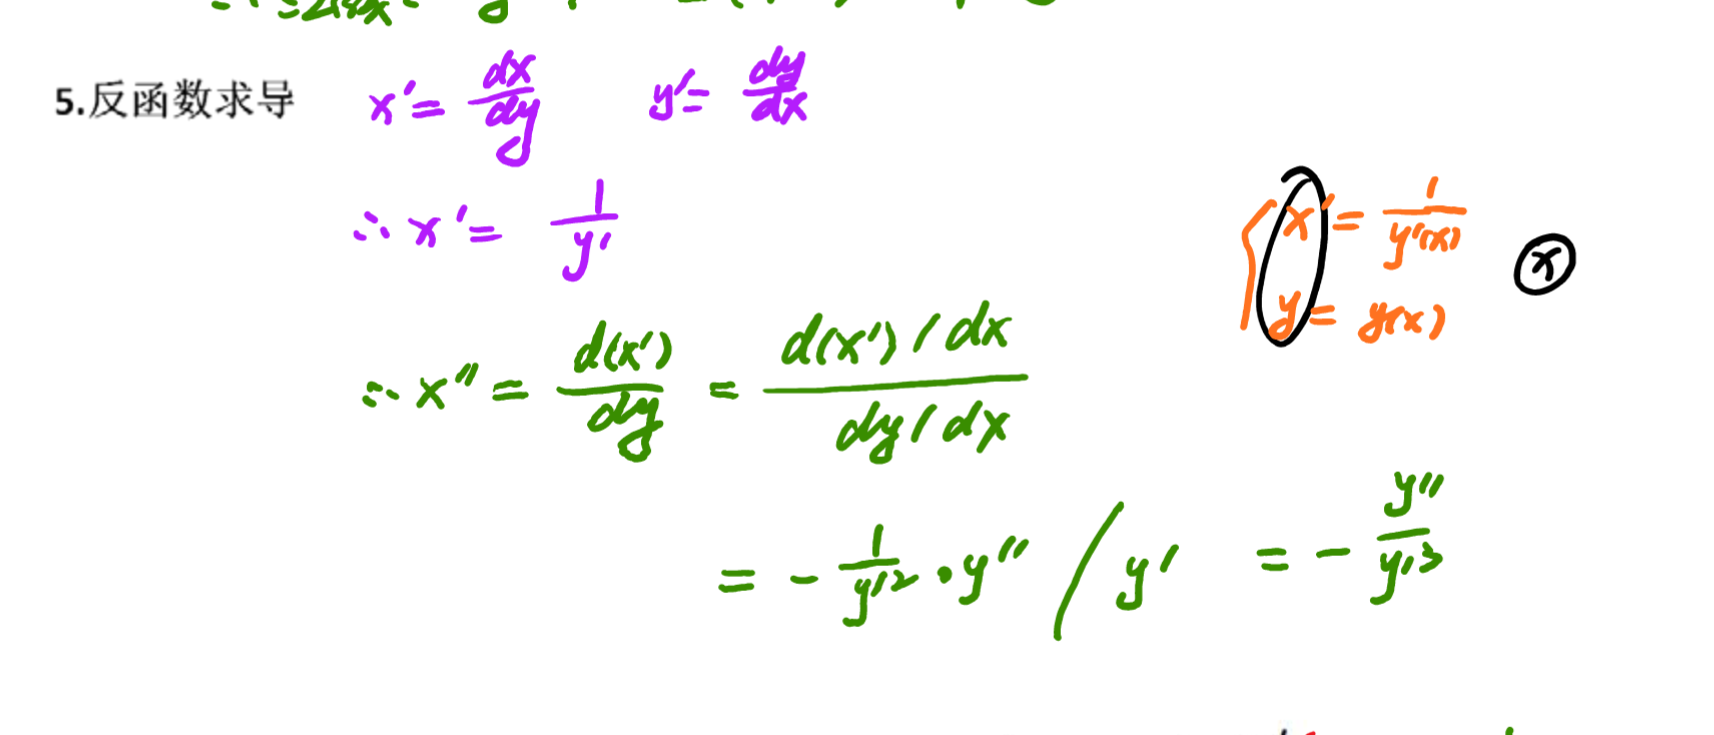 5.反函数求导 x' = dx/dy y' = dy/dx
∴ x' = 1/y'
{ x' = 1/y'(x)
y = y(x)
ⓧ
∴ x'' = d(x')/dy = (d(x')/dx)/(dy/dx)
= - 1/y'² · y'' / y' = - y''/y'³